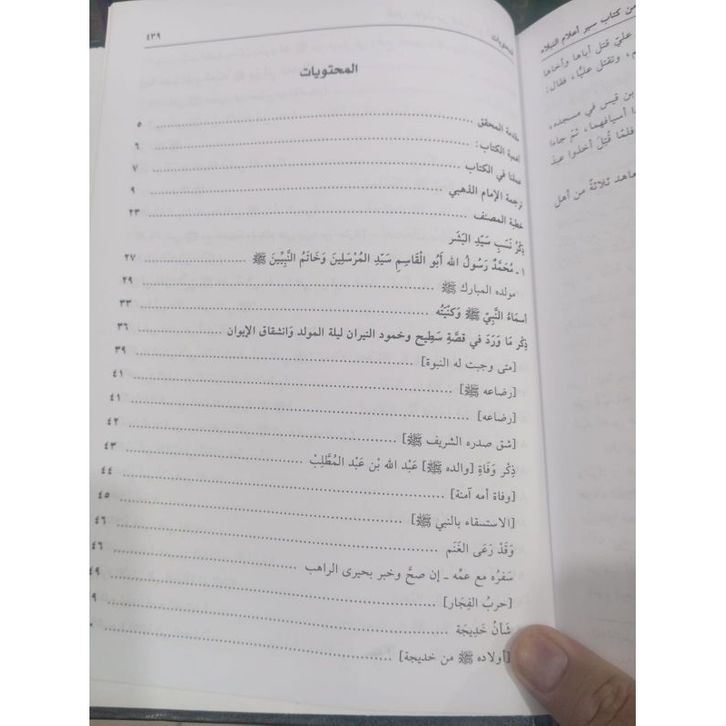 المحتويات
٤٣٩
المحتويات
مقدمة المحقق ٥
أهمية الكتاب: ٦
عملنا في الكتاب ٧
ترجمة الإمام الذهبي ٩
خطبة المصنف ٢٣
ذِكْرُ نَسَبِ سَيِّدِ البَشَر
١ - مُحَمَّدٌ رَسُولُ الله أَبُو الْقَاسِمِ سَيِّدِ المُرْسَلِينَ وَخَاتَمُ النَّبِيِّينَ ﷺ ٢٧
مولده المبارك ﷺ ٢٩
أسمَاءُ النَّبِيِّ ﷺ وَكُنْيَتُه ٣٣
ذِكْر مَا وَرَدَ في قصَّةِ سَطِيح وخمود النيران ليلة المولد وَانشقاق الإيوان ٣٦
[متى وجبت له النبوة] ٣٩
[رضاعه ﷺ] ٤١
[رضاعه] ٤١
[شق صدره الشريف ﷺ] ٤٢
ذِكْر وَفَاةِ [والده ﷺ] عَبْد الله بْن عَبْد المُطَّلِبْ ٤٣
[وفاة أمه آمنة] ٤٤
[الاستسقاء بالنبي ﷺ] ٤٥
وَقَدْ رَعَى الغَنَم ٤٦
سَفرُه مع عمِّه - إن صحَّ وخبر بحيرى الراهب ٤٦
[حربُ الفِجَار] ٤٩
شَأنُ خَدِيجَة
[أولاده ﷺ من خديجة]
من كتاب سير أعلام النبلاء
عليّ قتل أباها وأخاها
وتقتل عليًّا، فقال:
بن قيس في مسجده،
أسيافهما، ثمّ جاءا
فلمّا قُتِلَ أخذوا عبد
ثلاثةٌ من أهل